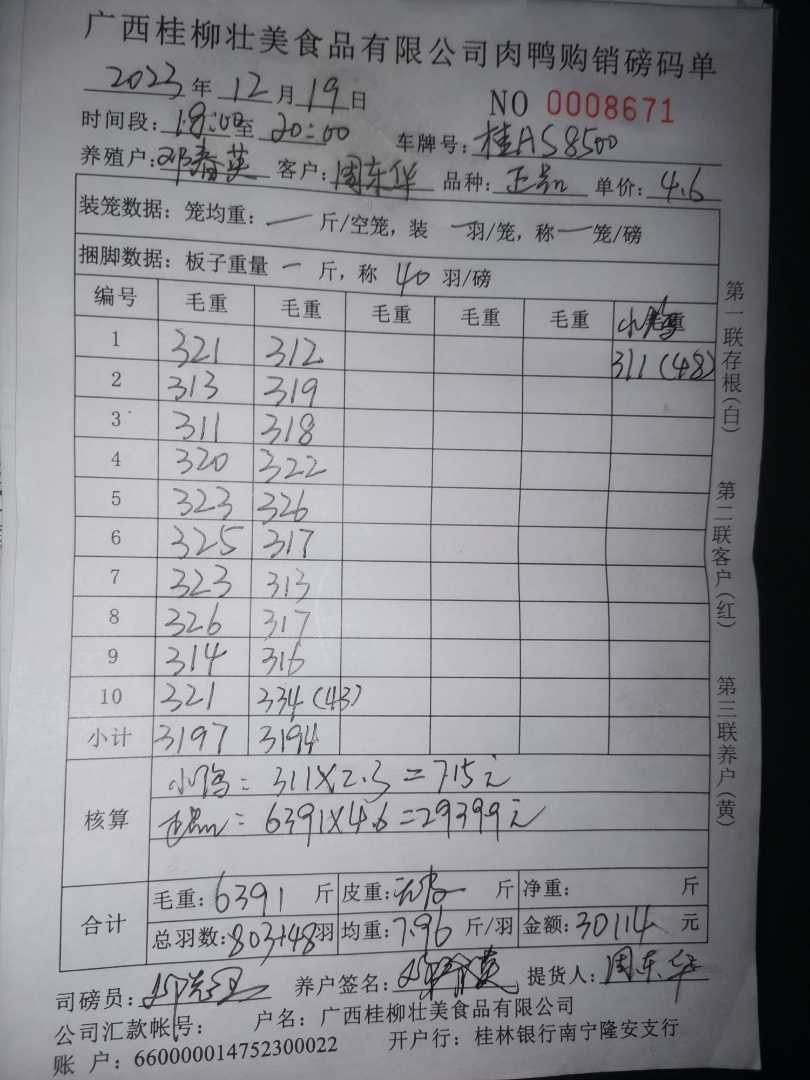 广西桂柳壮美食品有限公司肉鸭购销磅码单
2023年12月19日 NO 0008671
时间段:18:00至20:00 车牌号:桂AS8500
养殖户:邓春英 客户:周东华 品种:正品 单价:4.6
装笼数据:笼均重:一斤/空笼,装一羽/笼,称一笼/磅
捆脚数据:板子重量一斤,称40羽/磅
编号 毛重 毛重 毛重 毛重 毛重 毛重
1 321 312 311(48)
2 313 319
3 311 318
4 320 322
5 323 326
6 325 317
7 323 313
8 326 317
9 314 316
10 321 334(43)
小计 3197 3194
核算
小鸭:311×2.3=715元
正品:6391×4.6=29399元
合计
毛重:6391斤 皮重: 斤 净重: 斤
总羽数:803+48羽 均重:7.96斤/羽 金额:30114元
司磅员: 养户签名:邓春英 提货人:周东华
公司汇款帐号: 户名:广西桂柳壮美食品有限公司
账 户:660000014752300022 开户行:桂林银行南宁隆安支行
第一联存根(白)
第二联客户(红)
第三联养户(黄)